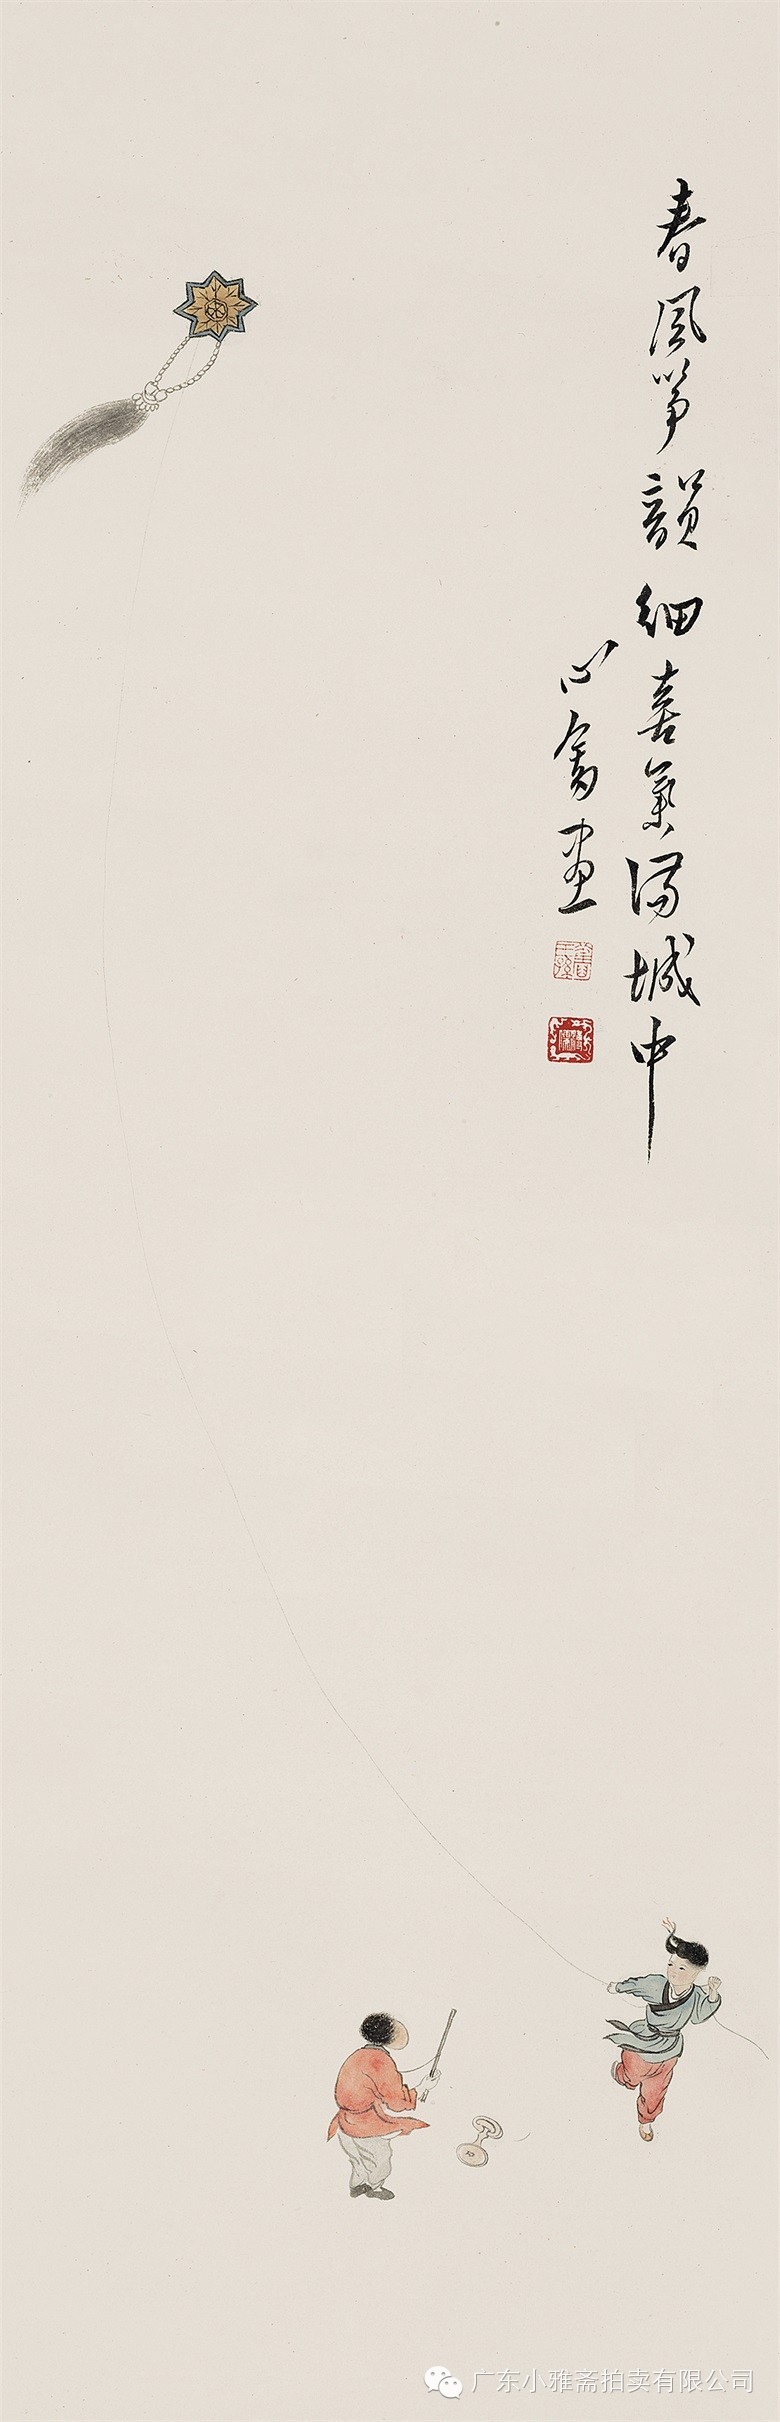 春風箏韻細喜氣滿城中
心畬畫
舊王孫
广东小雅斋拍卖有限公司